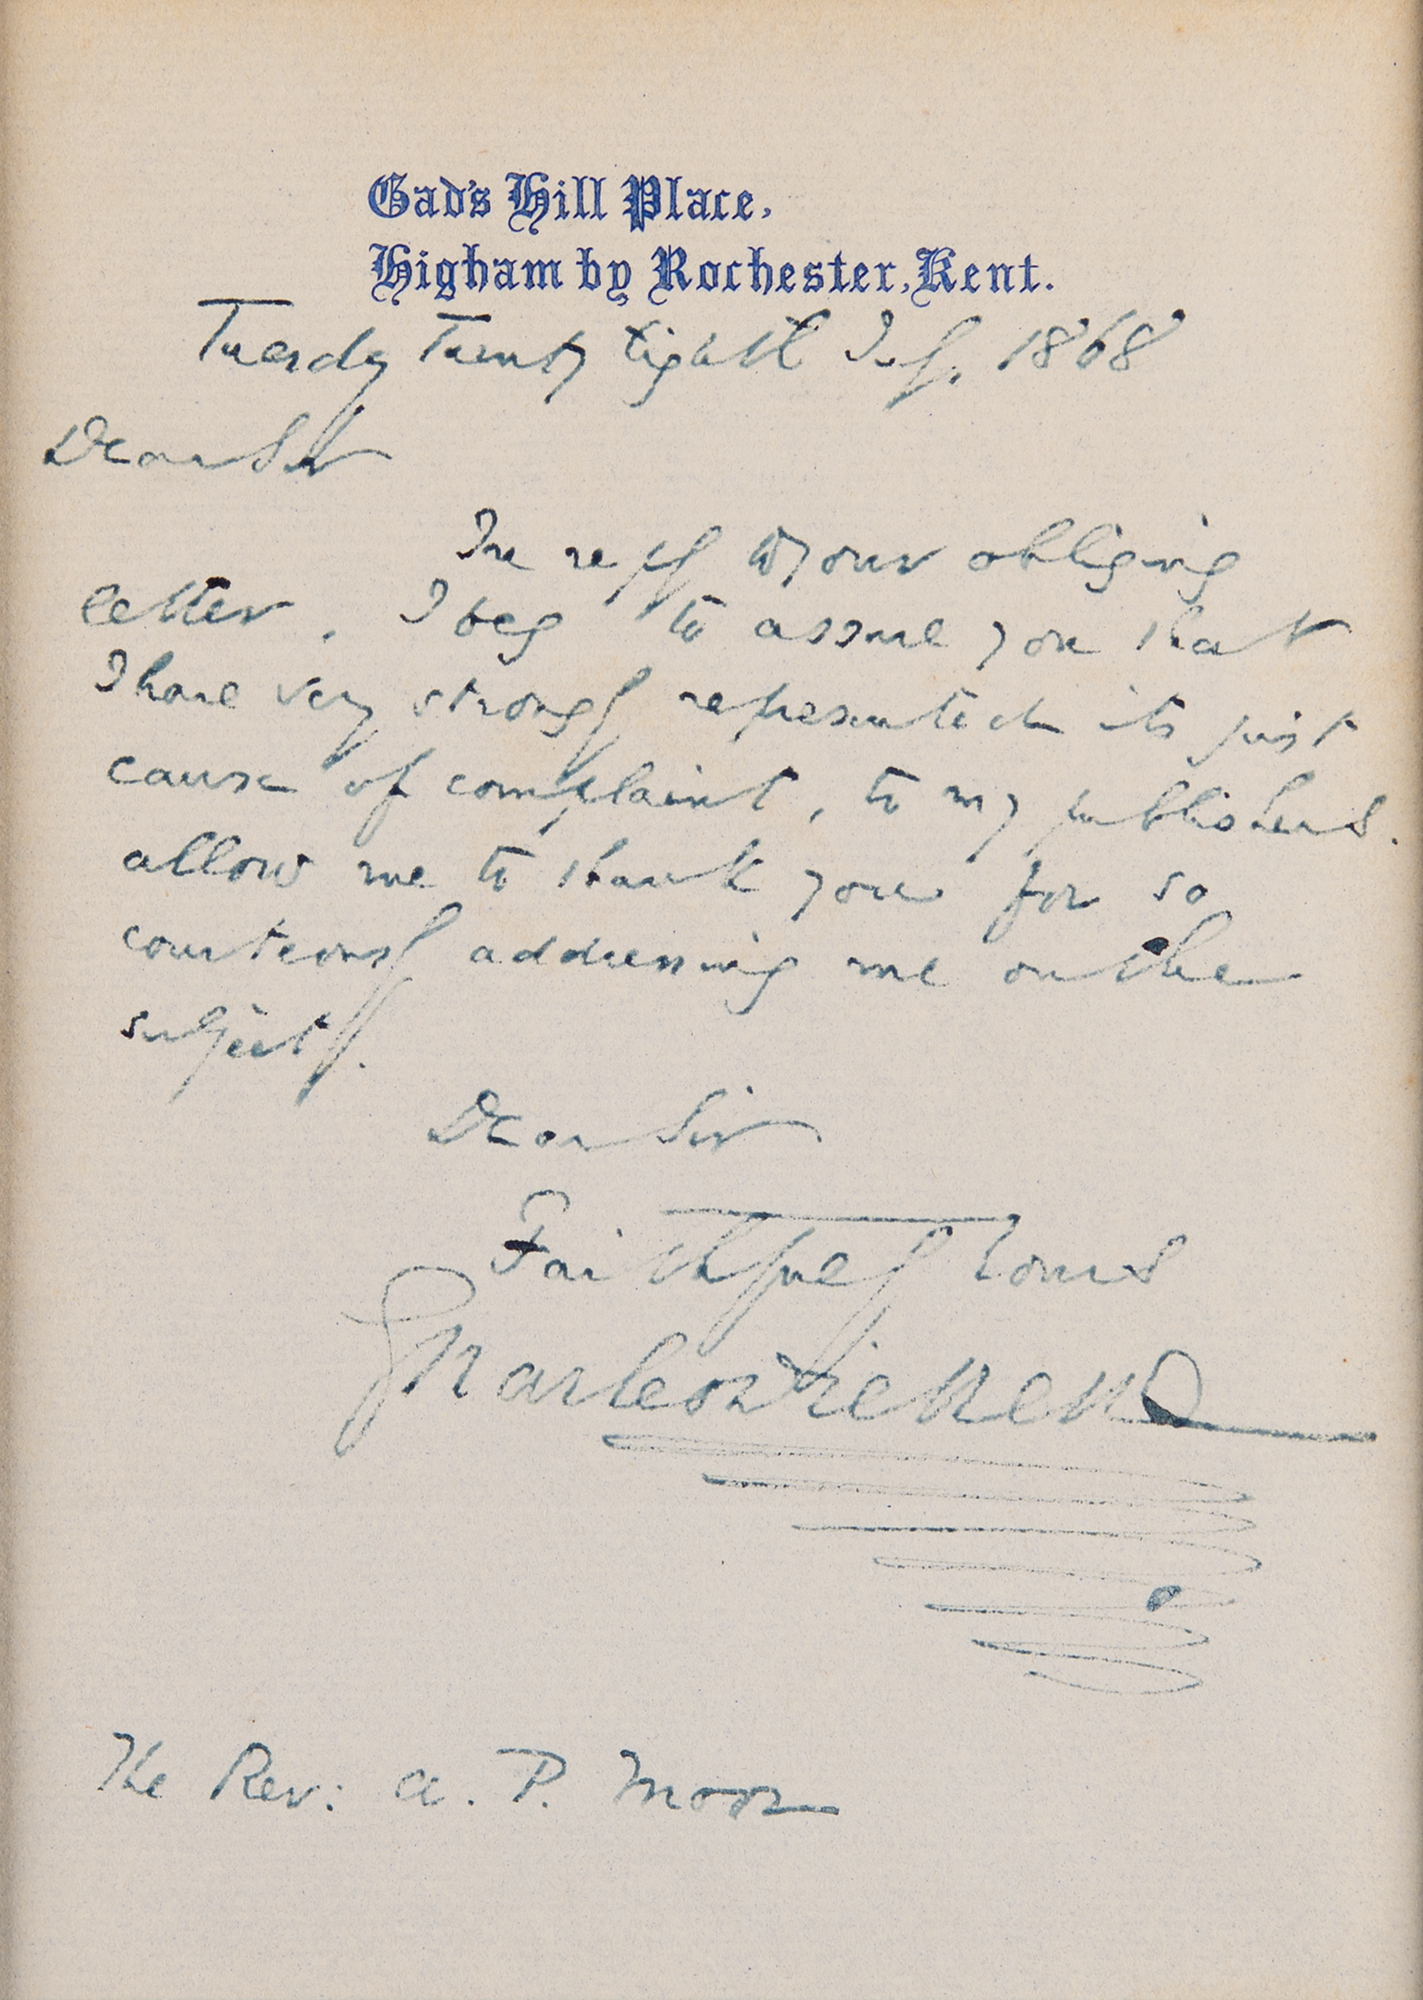 Gad's Hill Place,
Higham by Rochester, Kent.
Tuesday Twenty Eighth July, 1868
Dear Sir
In reply to your obliging
letter, I beg to assure you that
I have very strongly represented its just
cause of complaint, to my publishers.
allow me to thank you for so
courteously addressing me on the
subject.
Dear Sir
Faithfully Yours
Charles Dickens
The Rev: A. P. Moor